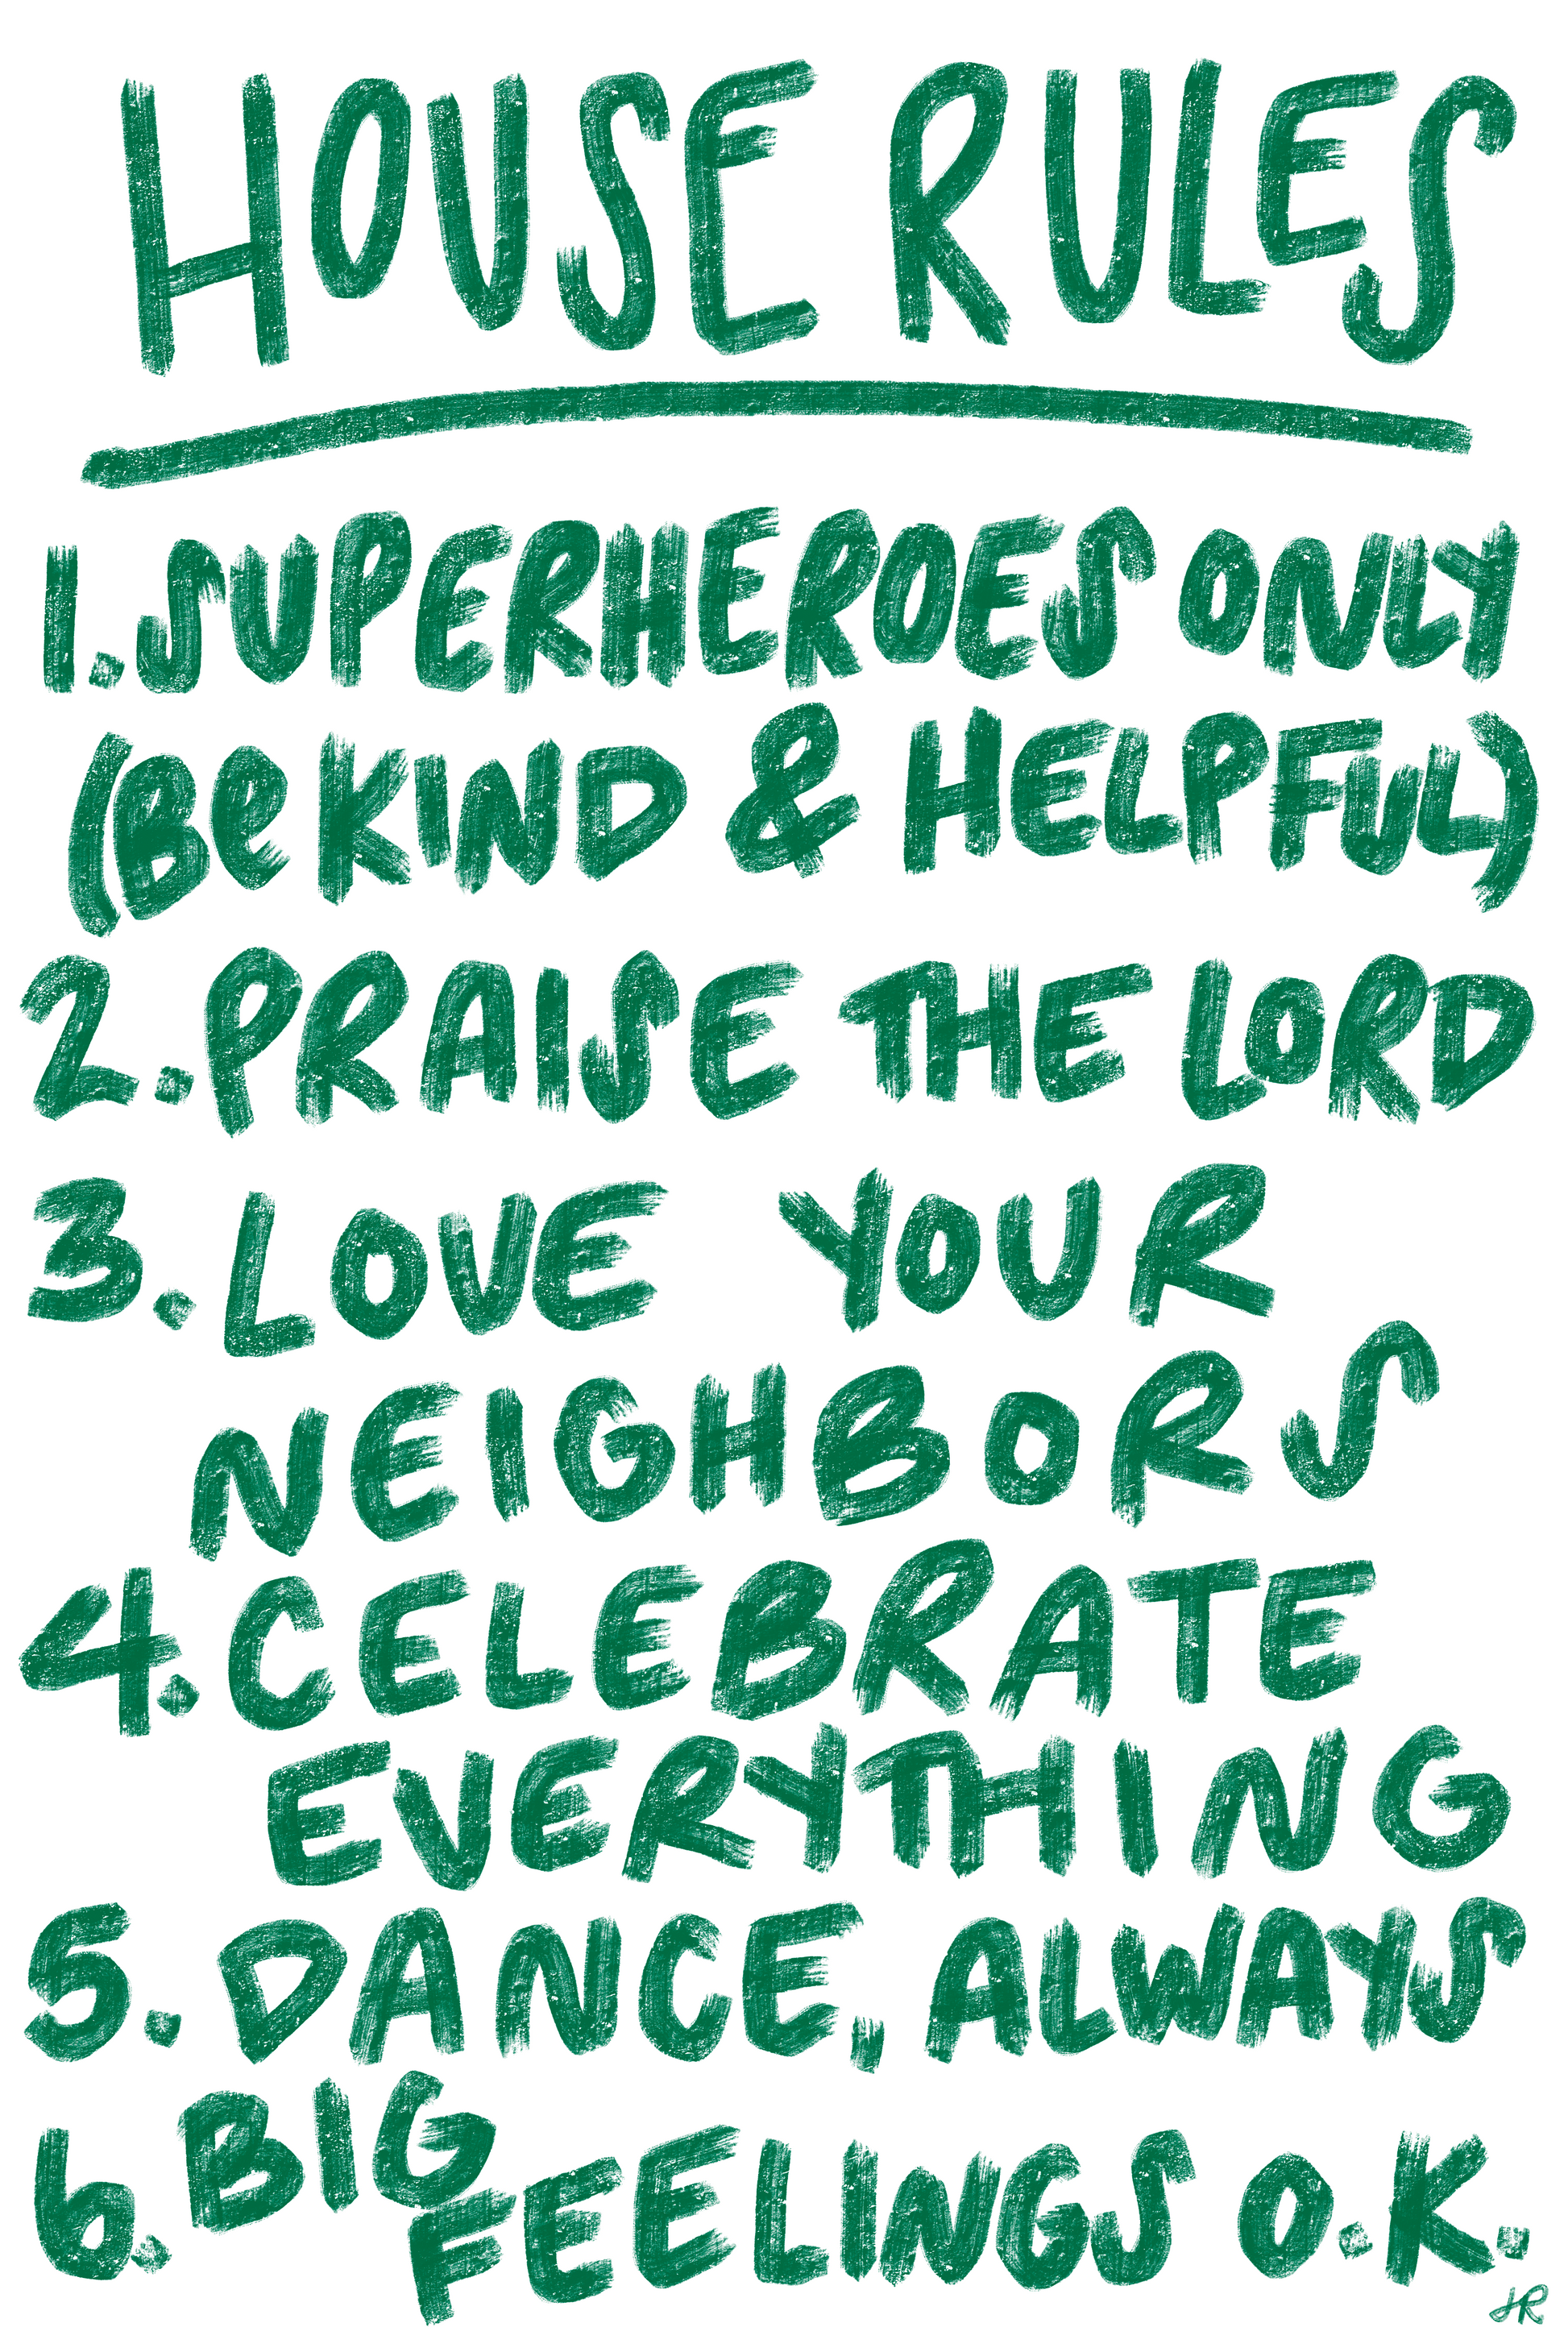 HOUSE RULES
1. SUPERHEROES ONLY
(Be KIND & HELPFUL)
2. PRAISE THE LORD
3. LOVE YOUR
NEIGHBORS
4. CELEBRATE
EVERYTHING
5. DANCE, ALWAYS
6. BIG
FEELINGS O.K.
JR